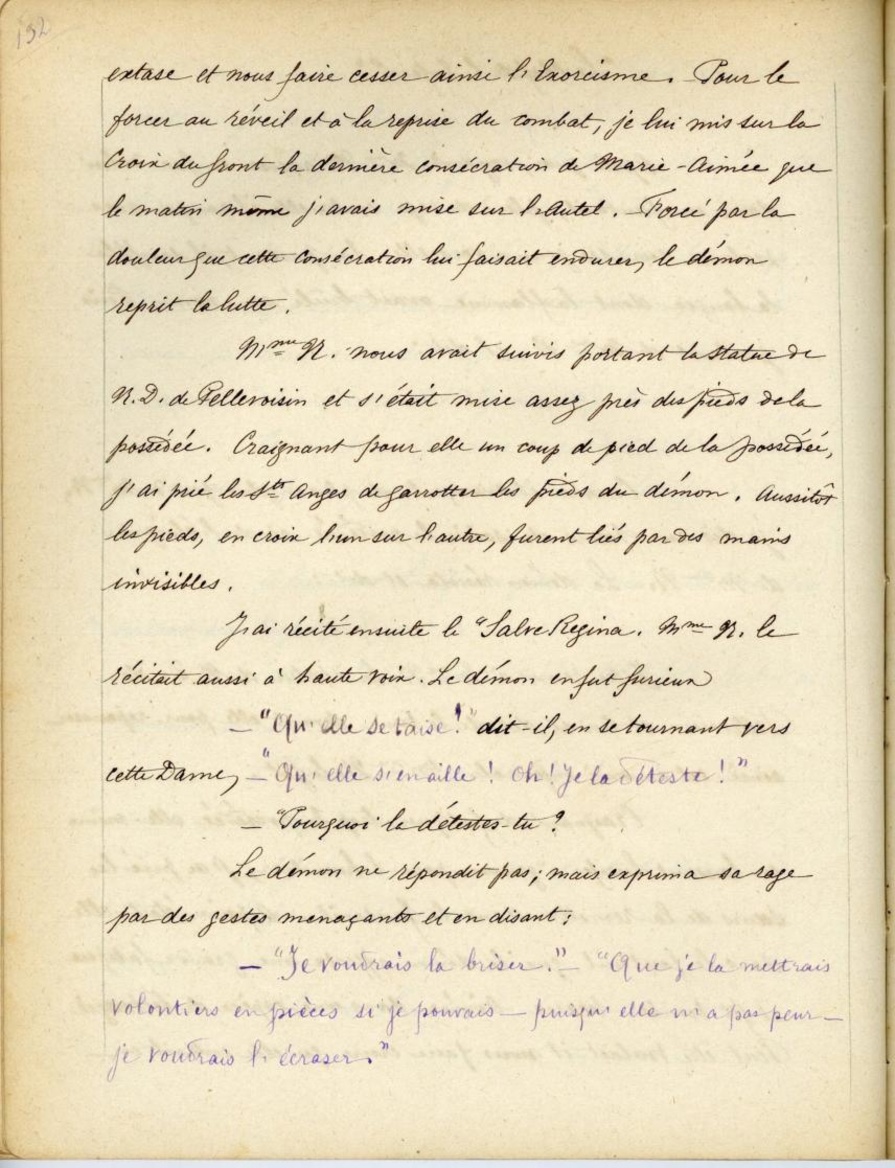 132
extase et nous faire cesser ainsi l'Exorcisme. Pour le
forcer au réveil et à la reprise du combat, je lui mis sur la
Croix du front la dernière consécration de Marie-Aimée que
le matin même j'avais mise sur l'Autel. Forcé par la
douleur que cette consécration lui faisait endurer, le démon
reprit la lutte.
Mme N. nous avait suivis portant la statue de
N.D. de Pellevoisin et s'était mise assez près des pieds de la
possédée. Craignant pour elle un coup de pied de la possédée,
j'ai prié les Sts Anges de garrotter les pieds du démon. Aussitôt
les pieds, en croix l'un sur l'autre, furent liés par des mains
invisibles.
J'ai récité ensuite le "Salve Regina. Mme N. le
récitait aussi à haute voix. Le démon en fut furieux
— "Qu'elle se taise!" dit-il, en se tournant vers
cette Dame, — "Qu'elle s'en aille! Oh! Je la déteste!"
— "Pourquoi la détestes-tu?
Le démon ne répondit pas; mais exprima sa rage
par des gestes menaçants et en disant:
— "Je voudrais la briser." — "Que je la mettrais
volontiers en pièces si je pouvais — puisqu'elle n'a pas peur —
je voudrais l'écraser."